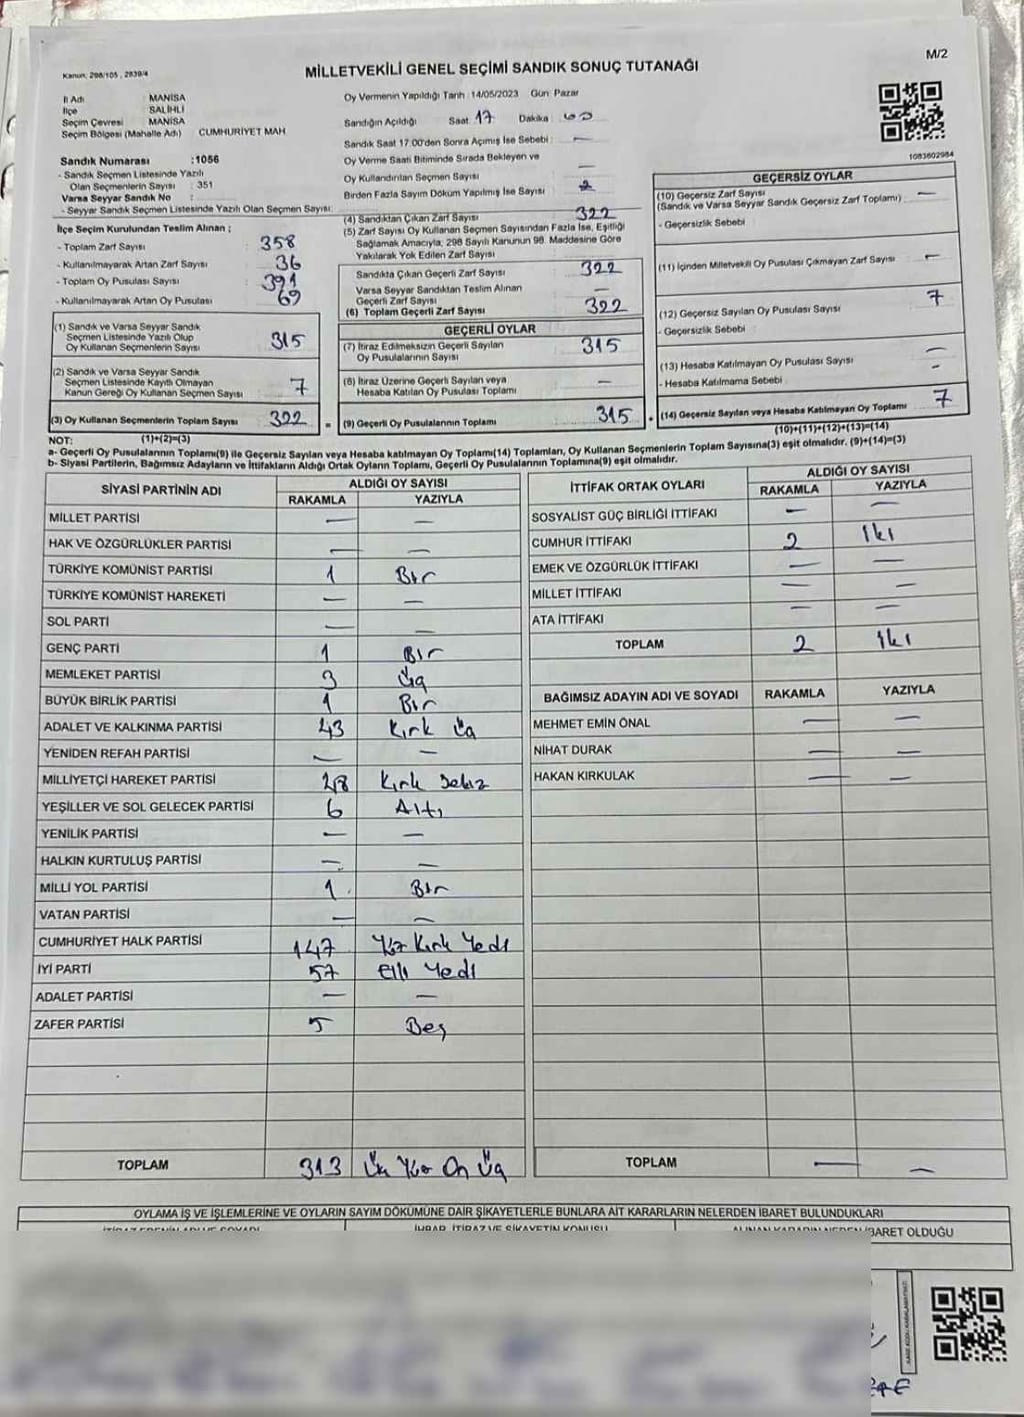 M/2
Kanun: 298/105 , 2839/4
MİLLETVEKİLİ GENEL SEÇİMİ SANDIK SONUÇ TUTANAĞI
İl Adı MANİSA
İlçe SALİHLİ
Seçim Çevresi MANİSA
Seçim Bölgesi (Mahalle Adı) CUMHURİYET MAH
Sandık Numarası :1056
- Sandık Seçmen Listesinde Yazılı
Olan Seçmenlerin Sayısı : 351
Varsa Seyyar Sandık No :
- Seyyar Sandık Seçmen Listesinde Yazılı Olan Seçmen Sayısı:
İlçe Seçim Kurulundan Teslim Alınan ;
- Toplam Zarf Sayısı : 358
- Kullanılmayarak Artan Zarf Sayısı : 36
- Toplam Oy Pusulası Sayısı : 391
- Kullanılmayarak Artan Oy Pusulası : 69
(1) Sandık ve Varsa Seyyar Sandık
Seçmen Listesinde Yazılı Olup
Oy Kullanan Seçmenlerin Sayısı 315
(2) Sandık ve Varsa Seyyar Sandık
Seçmen Listesinde Kayıtlı Olmayan
Kanun Gereği Oy Kullanan Seçmen Sayısı 7
(3) Oy Kullanan Seçmenlerin Toplam Sayısı 322
(1)+(2)=(3)
Oy Vermenin Yapıldığı Tarih :14/05/2023 Gün: Pazar
Sandığın Açıldığı Saat 17 Dakika 00
Sandık Saat 17:00'den Sonra Açılmış İse Sebebi : —
Oy Verme Saati Bitiminde Sırada Bekleyen ve
Oy Kullandırılan Seçmen Sayısı : —
Birden Fazla Sayım Döküm Yapılmış İse Sayısı : 2
(4) Sandıktan Çıkan Zarf Sayısı : 322
(5) Zarf Sayısı Oy Kullanan Seçmen Sayısından Fazla İse, Eşitliği
Sağlamak Amacıyla; 298 Sayılı Kanunun 98. Maddesine Göre
Yakılarak Yok Edilen Zarf Sayısı :
Sandıkta Çıkan Geçerli Zarf Sayısı : 322
Varsa Seyyar Sandıktan Teslim Alınan
Geçerli Zarf Sayısı : —
(6) Toplam Geçerli Zarf Sayısı : 322
GEÇERLİ OYLAR
(7) İtiraz Edilmeksizin Geçerli Sayılan
Oy Pusulalarının Sayısı 315
(8) İtiraz Üzerine Geçerli Sayılan veya
Hesaba Katılan Oy Pusulası Toplamı —
= (9) Geçerli Oy Pusulalarının Toplamı 315
1083602984
GEÇERSİZ OYLAR
(10) Geçersiz Zarf Sayısı
(Sandık ve Varsa Seyyar Sandık Geçersiz Zarf Toplamı) : —
- Geçersizlik Sebebi :
(11) İçinden Milletvekili Oy Pusulası Çıkmayan Zarf Sayısı : —
(12) Geçersiz Sayılan Oy Pusulası Sayısı : 7
- Geçersizlik Sebebi :
(13) Hesaba Katılmayan Oy Pusulası Sayısı : —
- Hesaba Katılmama Sebebi : —
+ (14) Geçersiz Sayılan veya Hesaba Katılmayan Oy Toplamı 7
(10)+(11)+(12)+(13)=(14)
NOT:
a- Geçerli Oy Pusulalarının Toplamı(9) ile Geçersiz Sayılan veya Hesaba katılmayan Oy Toplamı(14) Toplamları, Oy Kullanan Seçmenlerin Toplam Sayısına(3) eşit olmalıdır. (9)+(14)=(3)
b- Siyasi Partilerin, Bağımsız Adayların ve İttifakların Aldığı Ortak Oyların Toplamı, Geçerli Oy Pusulalarının Toplamına(9) eşit olmalıdır.
SİYASİ PARTİNİN ADI ALDIĞI OY SAYISI
RAKAMLA YAZIYLA
MİLLET PARTİSİ — —
HAK VE ÖZGÜRLÜKLER PARTİSİ — —
TÜRKİYE KOMÜNİST PARTİSİ 1 Bir
TÜRKİYE KOMÜNİST HAREKETİ — —
SOL PARTİ — —
GENÇ PARTİ 1 Bir
MEMLEKET PARTİSİ 3 Üç
BÜYÜK BİRLİK PARTİSİ 1 Bir
ADALET VE KALKINMA PARTİSİ 43 Kırk Üç
YENİDEN REFAH PARTİSİ — —
MİLLİYETÇİ HAREKET PARTİSİ 48 Kırk Sekiz
YEŞİLLER VE SOL GELECEK PARTİSİ 6 Altı
YENİLİK PARTİSİ — —
HALKIN KURTULUŞ PARTİSİ — —
MİLLİ YOL PARTİSİ 1 Bir
VATAN PARTİSİ — —
CUMHURİYET HALK PARTİSİ 147 Yüz Kırk Yedi
İYİ PARTİ 57 Elli Yedi
ADALET PARTİSİ — —
ZAFER PARTİSİ 5 Beş
TOPLAM 313 Üç Yüz On Üç
İTTİFAK ORTAK OYLARI ALDIĞI OY SAYISI
RAKAMLA YAZIYLA
SOSYALİST GÜÇ BİRLİĞİ İTTİFAKI — —
CUMHUR İTTİFAKI 2 İki
EMEK VE ÖZGÜRLÜK İTTİFAKI — —
MİLLET İTTİFAKI — —
ATA İTTİFAKI — —
TOPLAM 2 İki
BAĞIMSIZ ADAYIN ADI VE SOYADI RAKAMLA YAZIYLA
MEHMET EMİN ÖNAL — —
NİHAT DURAK — —
HAKAN KIRKULAK — —
TOPLAM — —
OYLAMA İŞ VE İŞLEMLERİNE VE OYLARIN SAYIM DÖKÜMÜNE DAİR ŞİKAYETLERLE BUNLARA AİT KARARLARIN NELERDEN İBARET BULUNDUKLARI
İTİRAZ EDENİN ADI VE SOYADI İHBAR, İTİRAZ VE ŞİKAYETİN KONUSU ALINAN KARARIN NEDEN İBARET OLDUĞU